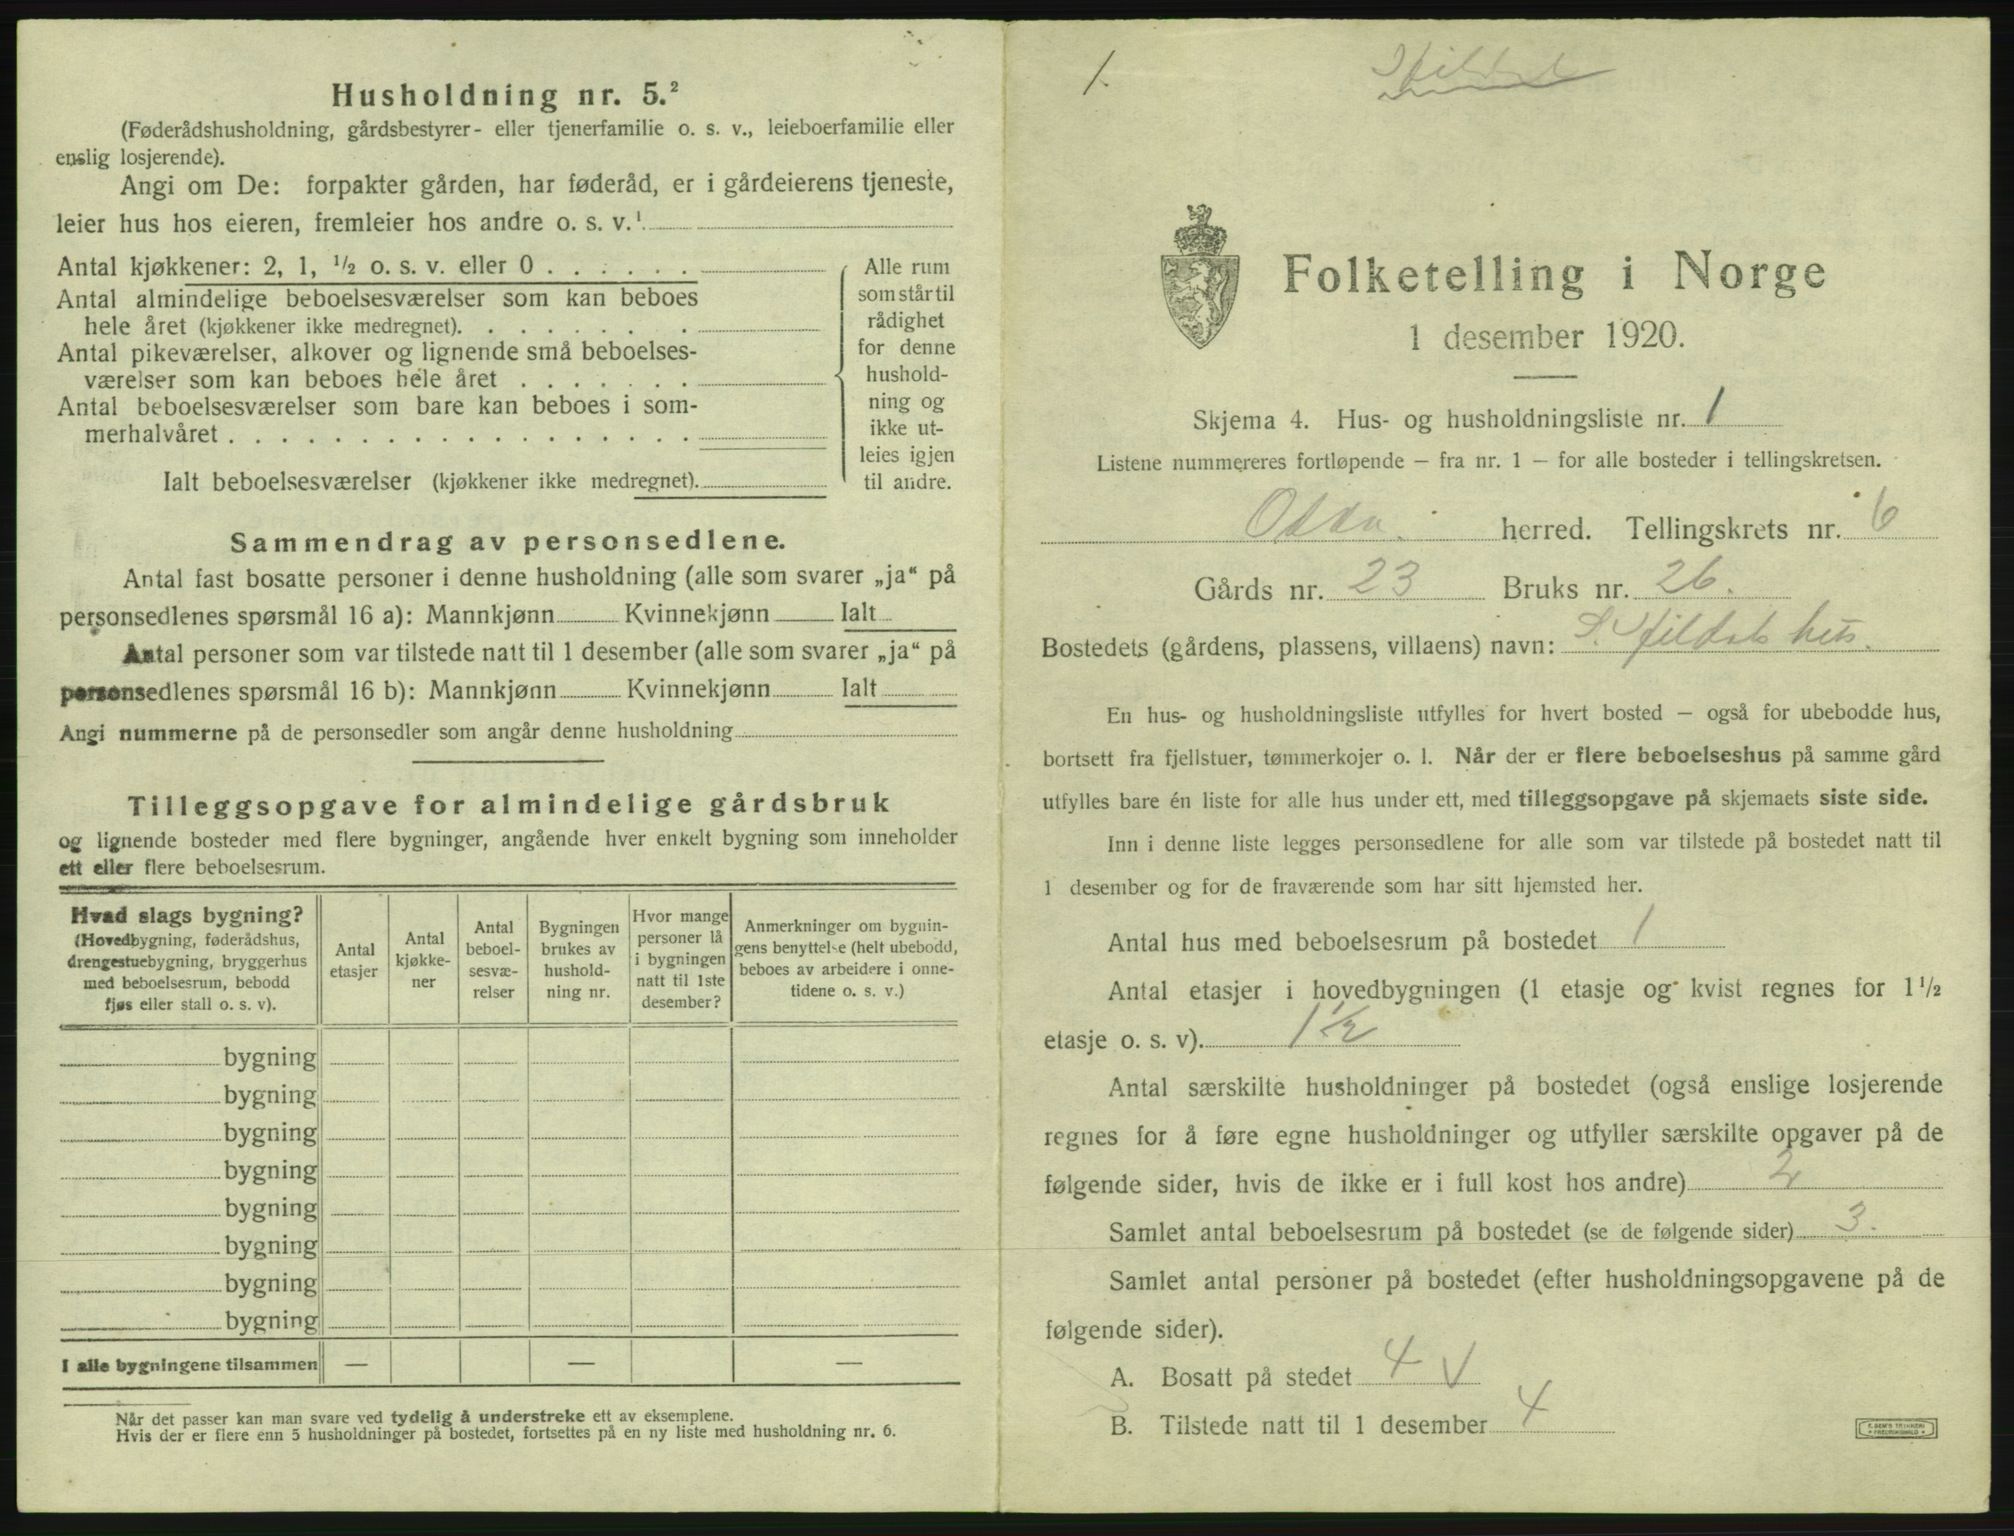 Husholdning nr. 5.²
(Føderådshusholdning, gårdsbestyrer- eller tjenerfamilie o. s. v., leieboerfamilie eller
enslig losjerende).
Angi om De: forpakter gården, har føderåd, er i gårdeierens tjeneste,
leier hus hos eieren, fremleier hos andre o. s. v.¹
Antal kjøkkener: 2, 1, ½ o. s. v. eller 0 . . . . . .
Antal almindelige beboelsesværelser som kan beboes
hele året (kjøkkener ikke medregnet). . . . . . . .
Antal pikeværelser, alkover og lignende små beboelses-
værelser som kan beboes hele året . . . . . . .
Antal beboelsesværelser som bare kan beboes i som-
merhalvåret . . . . . . . . . . . . . . . . . .
Ialt beboelsesværelser (kjøkkener ikke medregnet).
Alle rum
som står til
rådighet
for denne
hushold-
ning og
ikke ut-
leies igjen
til andre.
Sammendrag av personsedlene.
Antal fast bosatte personer i denne husholdning (alle som svarer „ja“ på
personsedlenes spørsmål 16 a): Mannkjønn Kvinnekjønn Ialt
Antal personer som var tilstede natt til 1 desember (alle som svarer „ja“ på
personsedlenes spørsmål 16 b): Mannkjønn Kvinnekjønn Ialt
Angi nummerne på de personsedler som angår denne husholdning
Tilleggsopgave for almindelige gårdsbruk
og lignende bosteder med flere bygninger, angående hver enkelt bygning som inneholder
ett eller flere beboelsesrum.
Hvad slags bygning?
(Hovedbygning, føderådshus,
drengestuebygning, bryggerhus
med beboelsesrum, bebodd
fjøs eller stall o. s. v).
Antal
etasjer
Antal
kjøkke-
ner
Antal
beboel-
sesvæ-
relser
Bygningen
brukes av
hushold-
ning nr.
Hvor mange
personer lå
i bygningen
natt til 1ste
desember?
Anmerkninger om bygnin-
gens benyttelse (helt ubebodd,
beboes av arbeidere i onne-
tidene o. s. v.)
bygning
bygning
bygning
bygning
bygning
bygning
bygning
bygning
I alle bygningene tilsammen — — —
Når det passer kan man svare ved tydelig å understreke ett av eksemplene.
Hvis der er flere enn 5 husholdninger på bostedet, fortsettes på en ny liste med husholdning nr. 6.
1.
Folketelling i Norge
1 desember 1920.
Skjema 4. Hus- og husholdningsliste nr. 1
Listene nummereres fortløpende – fra nr. 1 – for alle bosteder i tellingskretsen.
Odda. herred. Tellingskrets nr. 6
Gårds nr. 23 Bruks nr. 26.
Bostedets (gårdens, plassens, villaens) navn: S. Hildals hus.
En hus- og husholdningsliste utfylles for hvert bosted – også for ubebodde hus,
bortsett fra fjellstuer, tømmerkojer o. l. Når der er flere beboelseshus på samme gård
utfylles bare én liste for alle hus under ett, med tilleggsopgave på skjemaets siste side.
Inn i denne liste legges personsedlene for alle som var tilstede på bostedet natt til
1 desember og for de fraværende som har sitt hjemsted her.
Antal hus med beboelsesrum på bostedet 1
Antal etasjer i hovedbygningen (1 etasje og kvist regnes for 1½
etasje o. s. v). 1½
Antal særskilte husholdninger på bostedet (også enslige losjerende
regnes for å føre egne husholdninger og utfyller særskilte opgaver på de
følgende sider, hvis de ikke er i full kost hos andre) 2
Samlet antal beboelsesrum på bostedet (se de følgende sider) 3.
Samlet antal personer på bostedet (efter husholdningsopgavene på de
følgende sider).
A. Bosatt på stedet 4 √
B. Tilstede natt til 1 desember 4